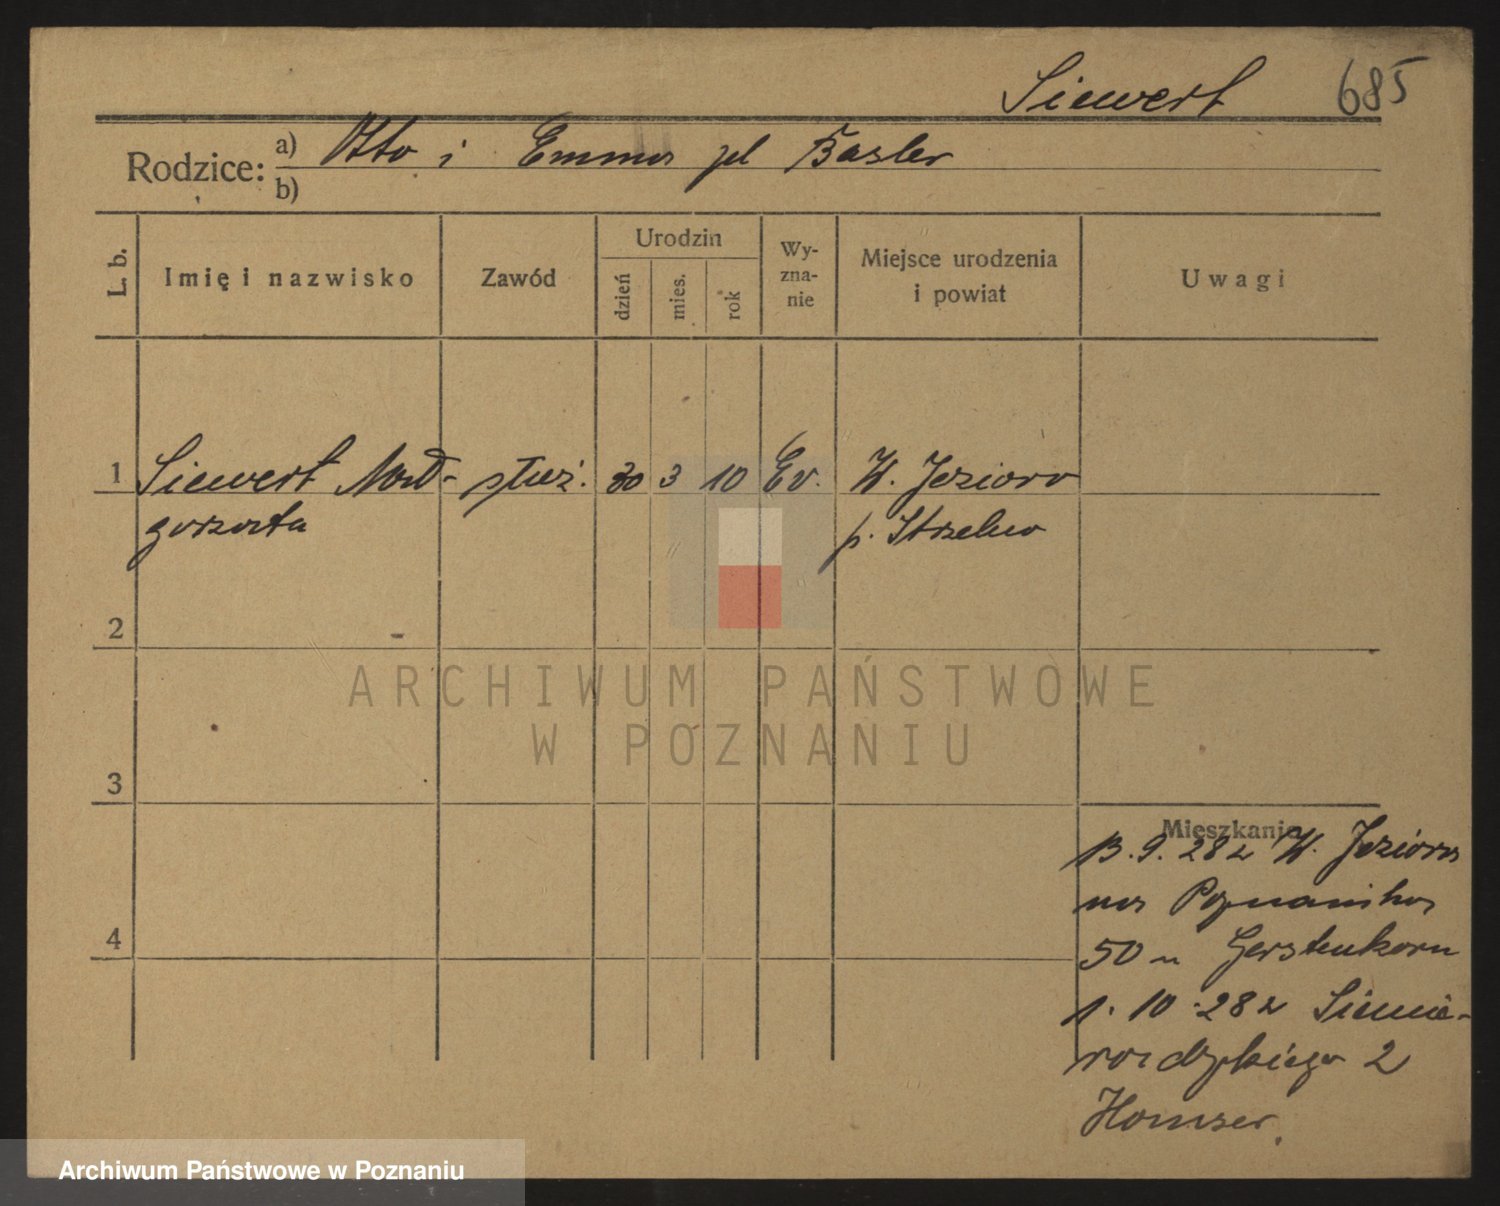 Siewert 685
Rodzice: a) Otto i Emma Basler
b)
L. b.
Imię i nazwisko
Zawód
Urodzin
dzień
mies.
rok
Wy-
zna-
nie
Miejsce urodzenia
i powiat
Uwagi
1 Siewert Mał- służ. 30 3 10 Ev. W. Jezioro
gorzata p. Strzelno
2
3
4
Mieszkanie
13.9.28 z W. Jeziora
na Poznańska
50 u Gerstenkorn
1.10.28 z Siemie-
radzkiego 2
ARCHIWUM PAŃSTWOWE
W POZNANIU
Archiwum Państwowe w Poznaniu